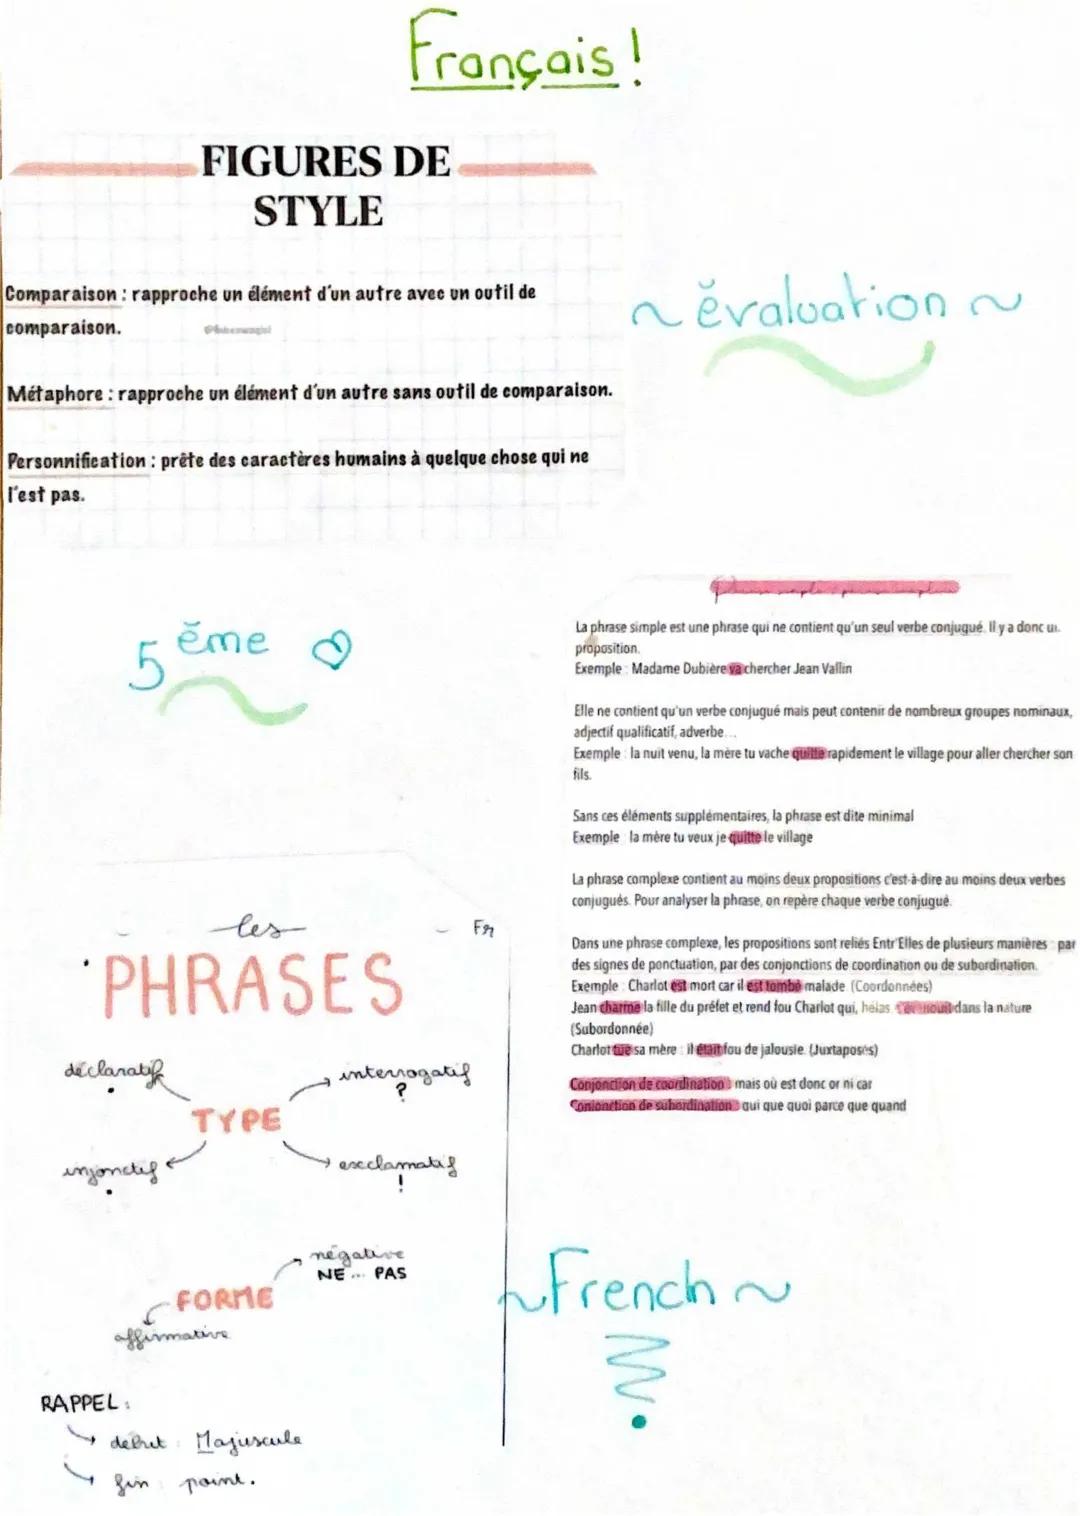 Français !
FIGURES DE
STYLE
Comparaison : rapproche un élément d'un autre avec un outil de
comparaison.
Métaphore : rapproche un élément d'un autre sans outil de comparaison.
Personnification : prête des caractères humains à quelque chose qui ne
l'est pas.
~ évaluation ~
5 ème
La phrase simple est une phrase qui ne contient qu'un seul verbe conjugué. Il y a donc
proposition.
Exemple : Madame Dubière va chercher Jean Vallin
Elle ne contient qu'un verbe conjugué mais peut contenir de nombreux groupes nominaux,
adjectif qualificatif, adverbe...
Exemple : la nuit venu, la mère tu vache quitte rapidement le village pour aller chercher son
fils.
Sans ces éléments supplémentaires, la phrase est dite minimal
Exemple : la mère tu veux je quitte le village
La phrase complexe contient au moins deux propositions c'est-à-dire au moins deux verbes
conjugués. Pour analyser la phrase, on repère chaque verbe conjugué.
Dans une phrase complexe, les propositions sont reliés Entr'Elles de plusieurs manières : par
des signes de ponctuation, par des conjonctions de coordination ou de subordination.
Exemple : Charlot est mort car il est tombé malade. (Coordonnées)
Jean charme la fille du préfet et rend fou Charlot qui, hélas, dans la nature
(Subordonnée)
Charlot tue sa mère : il était fou de jalousie. (Juxtaposés)
Conjonction de coordination : mais où est donc or ni car
Conjonction de subordination : qui que quoi parce que quand
les
Fr
PHRASES
déclaratif
.
interrogatif
?
TYPE
injonctif
.
exclamatif
!
négative
NE ... PAS
FORME
affirmative
RAPPEL :
début : Majuscule
fin : point.
~ French ~